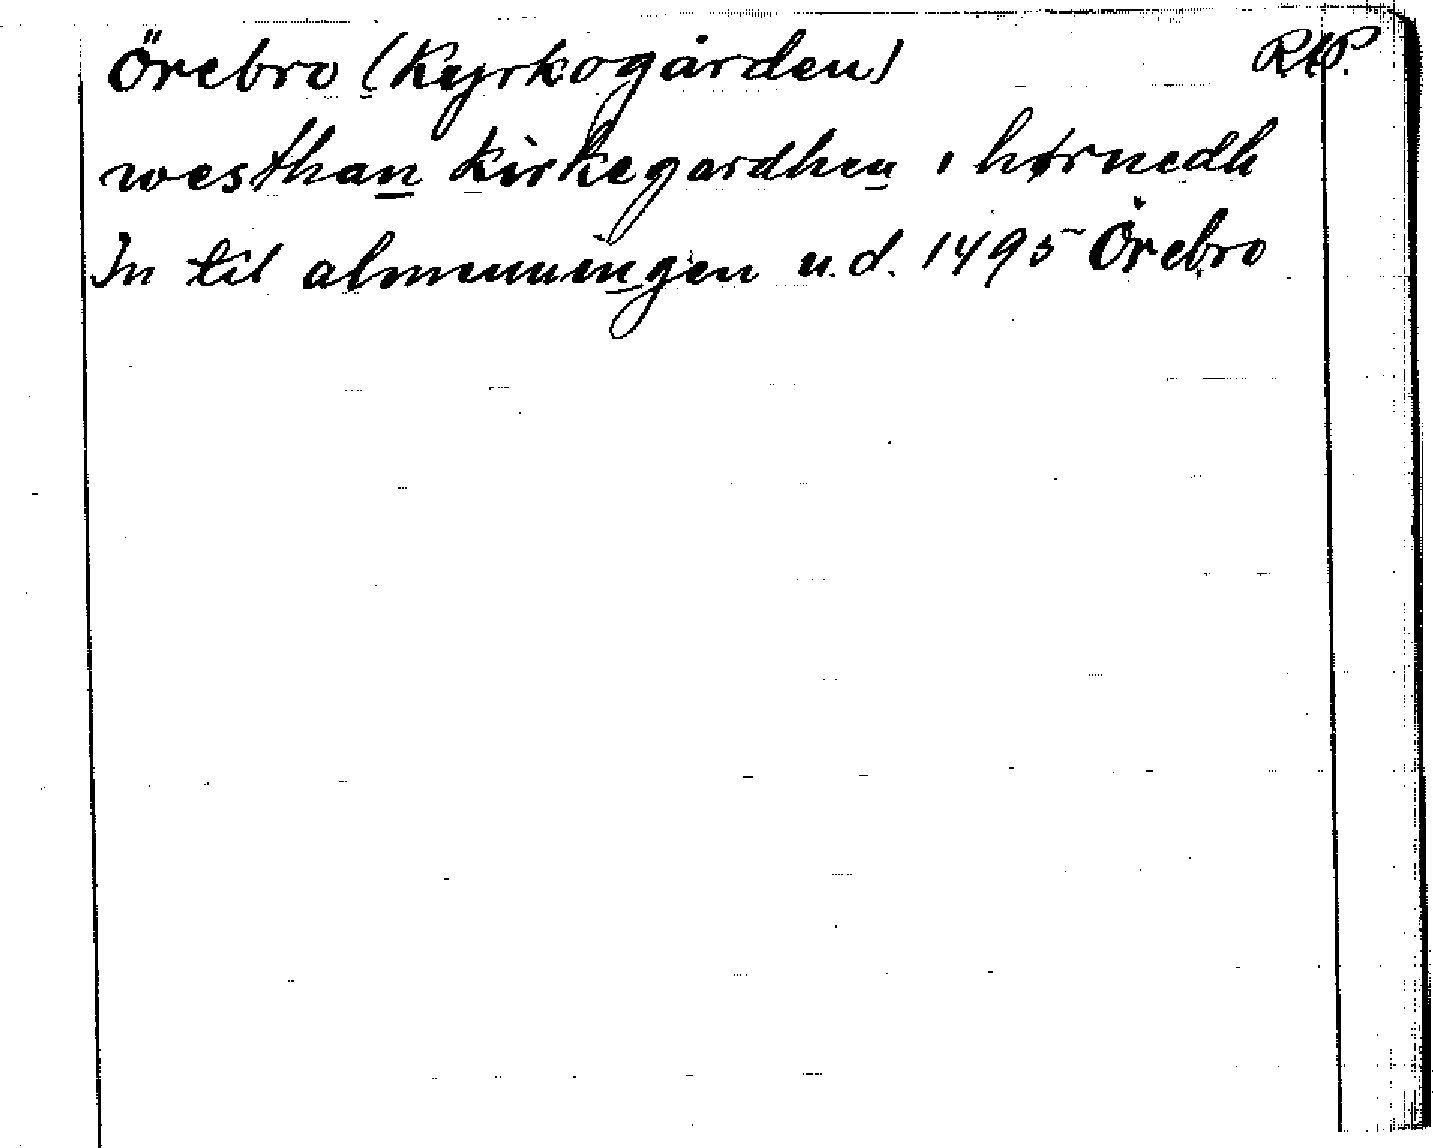 Örebro (Kyrkogården) RAP.
westhan kirkegardhen i hørnedh
In til almenningen u.d. 1495 Örebro